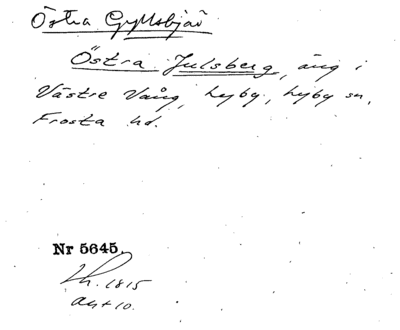 Östra Gyllsbjär
Östra Julsberg, äng i
Västre Vång, Hyby, Hyby sn,
Frosta hd.
Nr 5645.
Lh. 1815
akt 10.